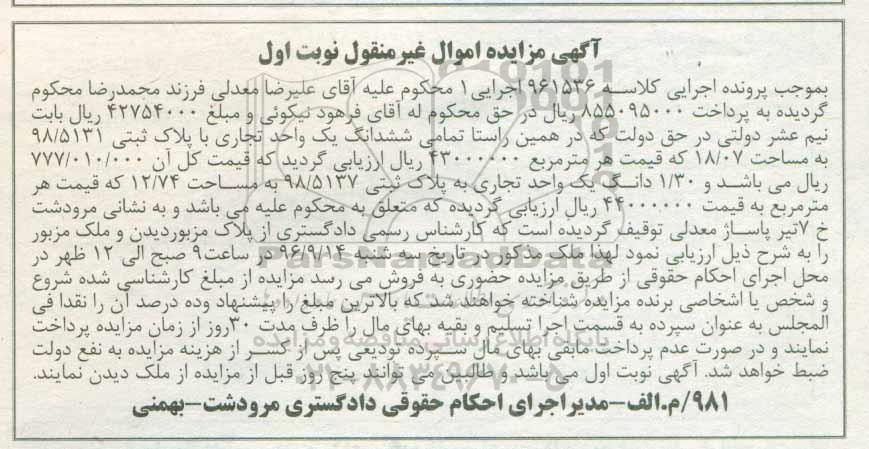 آگهی مزایده اموال غیرمنقول نوبت اول
بموجب پرونده اجرایی کلاسه ۹۶۱۵۳۶ اجرایی۱ محکوم علیه آقای علیرضا معدلی فرزند محمدرضا محکوم
گردیده به پرداخت ۸۵۵۰۹۵۰۰۰ ریال در حق محکوم له آقای فرهود نیکوئی و مبلغ ۴۲۷۵۴۰۰۰ ریال بابت
نیم عشر دولتی در حق دولت که در همین راستا تمامی ششدانگ یک واحد تجاری با پلاک ثبتی ۹۸/۵۱۳۱
به مساحت ۱۸/۰۷ که قیمت هر مترمربع ۴۳۰۰۰۰۰۰ ریال ارزیابی گردید که قیمت کل آن ۷۷۷/۰۱۰/۰۰۰
ریال می باشد و ۱/۳۰ دانگ یک واحد تجاری به پلاک ثبتی ۹۸/۵۱۳۷ به مساحت ۱۲/۷۴ که قیمت هر
مترمربع به قیمت ۴۴۰۰۰۰۰۰ ریال ارزیابی گردیده که متعلق به محکوم علیه می باشد و به نشانی مرودشت
خ ۷تیر پاساژ معدلی توقیف گردیده است که کارشناس رسمی دادگستری از پلاک مزبوردیدن و ملک مزبور
را به شرح ذیل ارزیابی نمود لهذا ملک مذکور در تاریخ سه شنبه ۹۶/۹/۱۴ در ساعت۹ صبح الی ۱۲ ظهر در
محل اجرای احکام حقوقی از طریق مزایده حضوری به فروش می رسد مزایده از مبلغ کارشناسی شده شروع
و شخص یا اشخاصی برنده مزایده شناخته خواهند شد که بالاترین مبلغ را پیشنهاد وده درصد آن را نقدا فی
المجلس به عنوان سپرده به قسمت اجرا تسلیم و بقیه بهای مال را ظرف مدت ۳۰روز از زمان مزایده پرداخت
نمایند و در صورت عدم پرداخت مابقی بهای مال سپرده تودیعی پس از کسر از هزینه مزایده به نفع دولت
ضبط خواهد شد. آگهی نوبت اول می باشد و طالبین می توانند پنج روز قبل از مزایده از ملک دیدن نمایند.
۹۸۱/م.الف-مدیراجرای احکام حقوقی دادگستری مرودشت-بهمنی
ParsNamadData
پایگاه اطلاع رسانی مناقصه و مزایده
۰۲۱-۸۸۳۴۹۶۷۰-۵